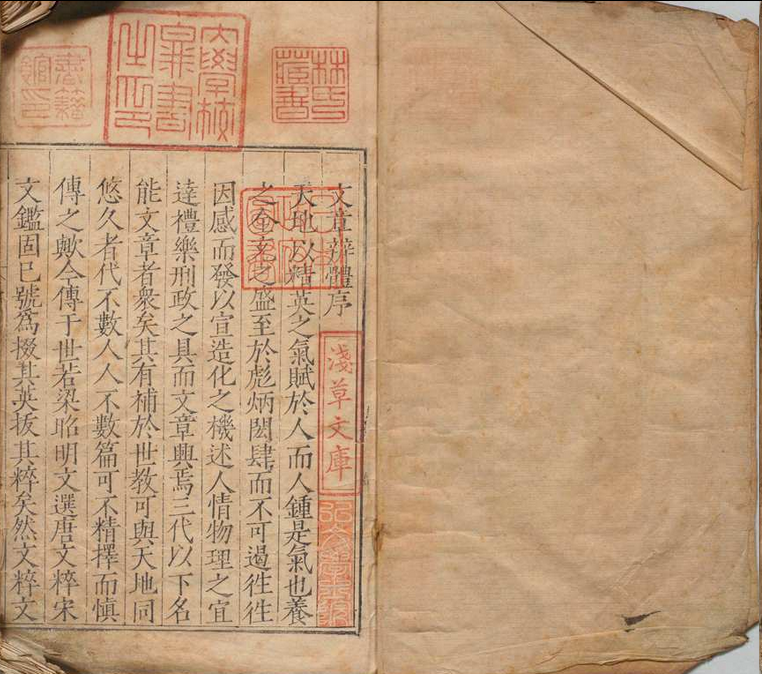 書籍館印
大學校圖書之印
林氏藏書
文章辨體序
天地以精英之氣賦於人而人鍾是氣也養
之全充之盛至於彪炳閎肆而不可遏徃徃
因感而發以宣造化之機述人情物理之宜
達禮樂刑政之具而文章興焉三代以下名
能文章者衆矣其有補於世教可與天地同
悠久者代不數人人不數篇可不精擇而愼
傳之歟今傳于世若梁昭明文選唐文粹宋
文鑑固已號爲掇其英拔其粹矣然文粹文
淺草文庫